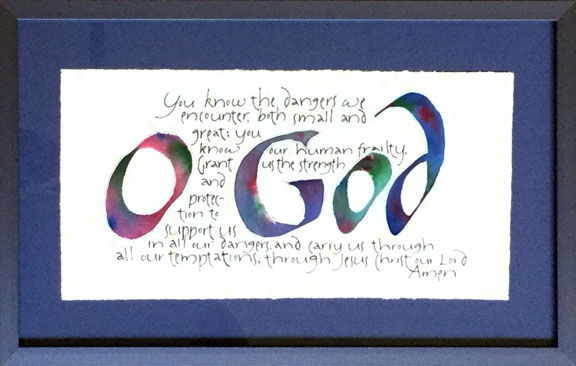 O God
You know the dangers we
encounter, both small and
great; you
know our human frailty.
Grant us the strength
and
protec-
tion to
support us
in all our dangers, and carry us through
all our temptations; through Jesus Christ our Lord
Amen